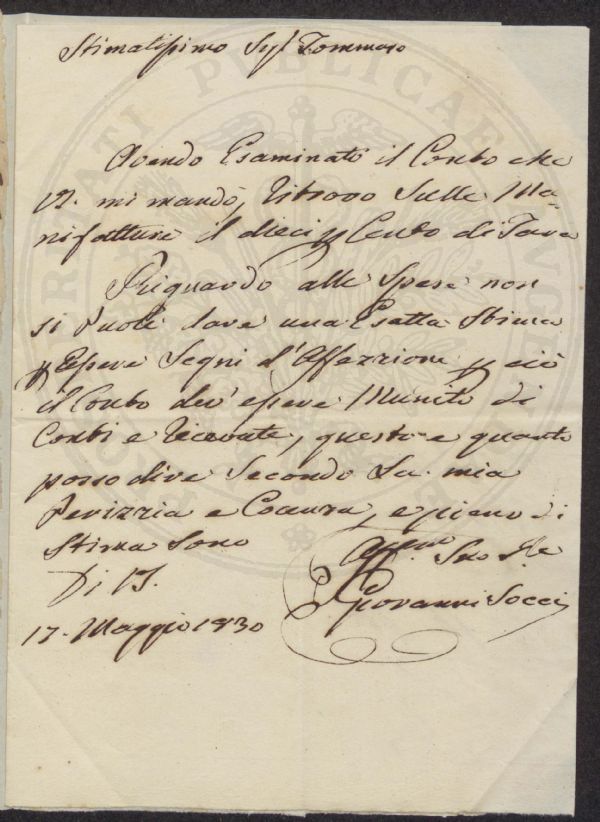 Stimatissimo Sigr Tommaso
Avendo Esaminato il Conto che
VS. mi mandò, ritrovo Sulle Ma-
nifatture il dieci p Cento di Tara
Riguardo alle Spese non
si Puole dare una Esatta Stima
p Essere Segni d'Affezzione p ciò
il Conto dev'essere Munito di
Conti e Ricevute, questo e quanto
posso dire Secondo La mia
Perizzia e Cocenza, e pieno di
Stima Sono
Di VS.
Affmo Suo Se
Giovanni Socci
17. Maggio 1830
PRIVATI PUBLICAE